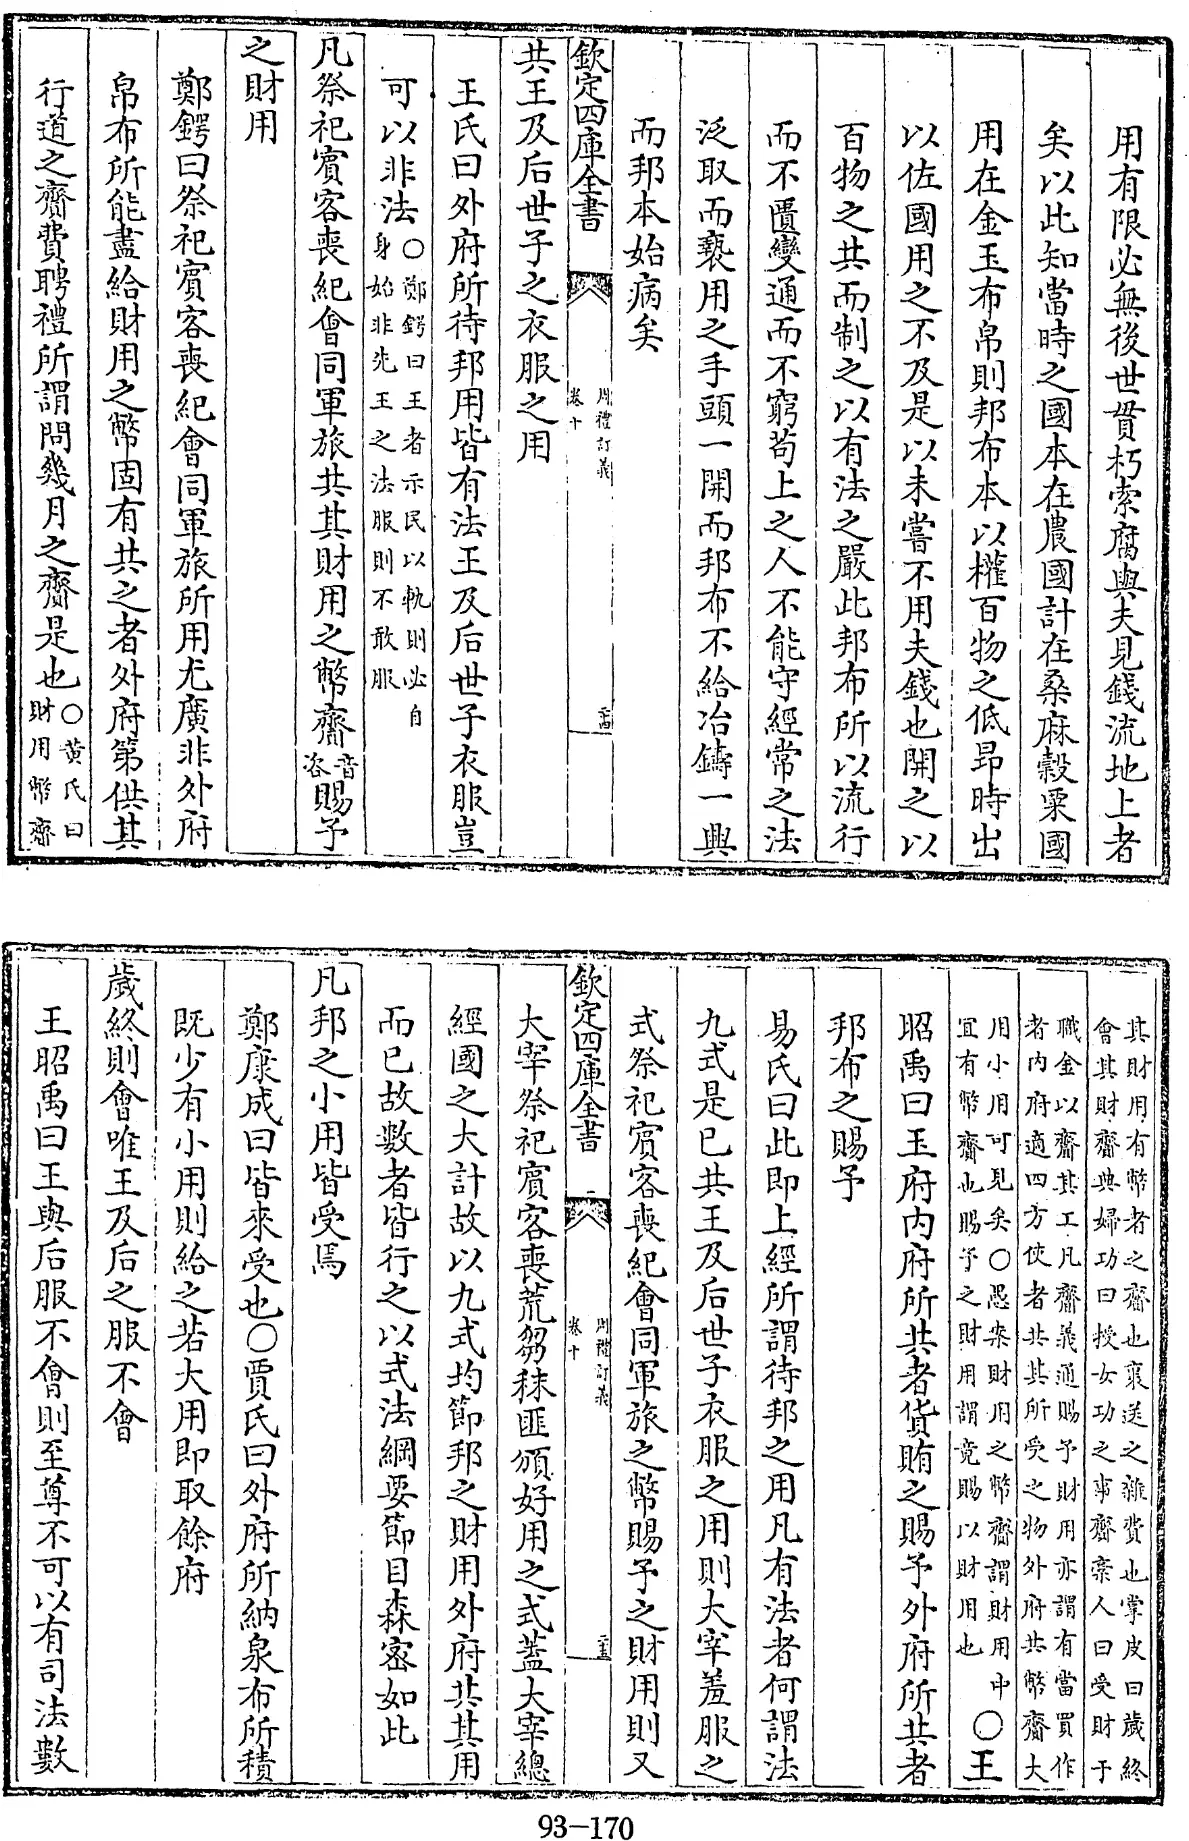 用有限必無後世貫朽索腐與夫見錢流地上者
矣以此知當時之國本在農國計在桑麻穀粟國
用在金玉布帛則邦布本以權百物之低昻時出
以佐國用之不及是以未嘗不用夫錢也開之以
百物之共而制之以有法之嚴此邦布所以流行
而不匱變通而不窮苟上之人不能守經常之法
泛取而褻用之手頭一開而邦布不給冶鑄一興
而邦本始病矣
欽定四庫全書 周禮訂義 卷十 二十四
共王及后世子之衣服之用
王氏曰外府所待邦用皆有法王及后世子衣服豈
可以非法○鄭鍔曰王者示民以軌則必自身始非先王之法服則不敢服
凡祭祀賓客喪紀會同軍旅共其財用之幣齎音咨賜予
之財用
鄭鍔曰祭祀賓客喪紀會同軍旅所用尤廣非外府
帛布所能盡給財用之幣固有共之者外府第供其
行道之齎費聘禮所謂問幾月之齎是也○黄氏曰財用幣齎
其財用有幣者之齎也裹送之雜費也掌皮曰歲終
會其財齎典婦功曰授女功之事齎槀人曰受財于
職金以齎其工凡齎義通賜予財用亦謂有當買作
者内府適四方使者共其所受之物外府共幣齎大
用小用可見矣○愚案財用之幣齎謂財用中
宜有幣齎也賜予之財用謂竟賜以財用也○王
昭禹曰玉府内府所共者貨賄之賜予外府所共者
邦布之賜予
易氏曰此即上經所謂待邦之用凡有法者何謂法
九式是已共王及后世子衣服之用則大宰羞服之
式祭祀賓客喪紀會同軍旅之幣賜予之財用則又
欽定四庫全書 周禮訂義 卷十 二十五
大宰祭祀賓客喪荒芻秣匪頒好用之式蓋大宰總
經國之大計故以九式均節邦之財用外府共其用
而已故數者皆行之以式法綱要節目森宻如此
凡邦之小用皆受焉
鄭康成曰皆來受也○賈氏曰外府所納泉布所積
既少有小用則給之若大用即取餘府
歲終則會唯王及后之服不會
王昭禹曰王與后服不會則至尊不可以有司法數
93-170